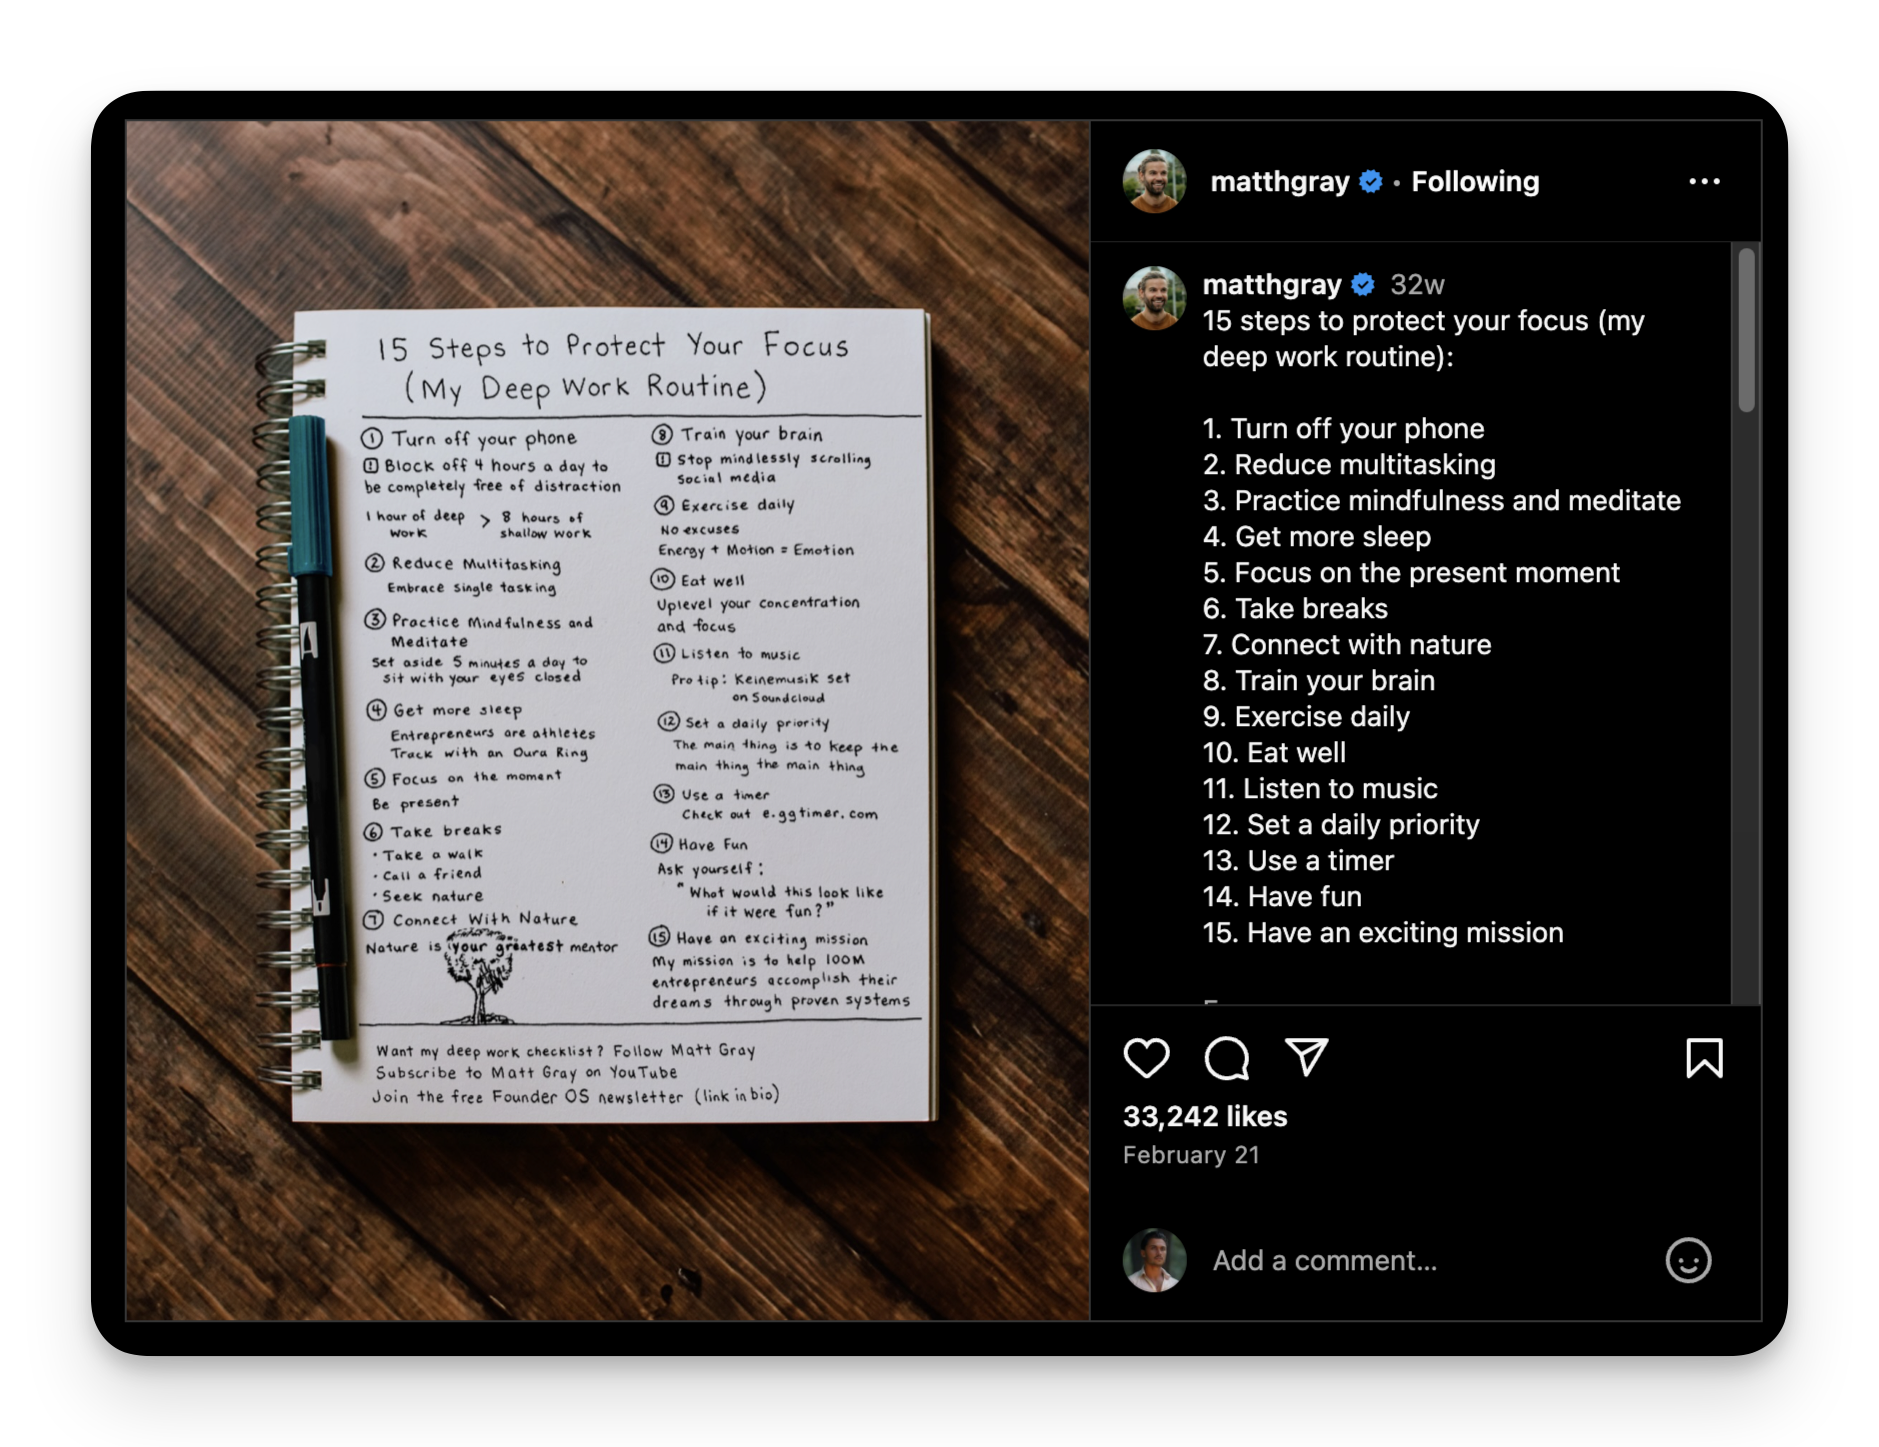 15 Steps to Protect Your Focus
(My Deep Work Routine)
① Turn off your phone
① Block off 4 hours a day to
be completely free of distraction
1 hour of deep work > 8 hours of shallow work
② Reduce Multitasking
Embrace single tasking
③ Practice Mindfulness and
Meditate
Set aside 5 minutes a day to
sit with your eyes closed
④ Get more sleep
Entrepreneurs are athletes
Track with an Oura Ring
⑤ Focus on the moment
Be present
⑥ Take breaks
· Take a walk
· Call a friend
· Seek nature
⑦ Connect With Nature
Nature is your greatest mentor
⑧ Train your brain
① Stop mindlessly scrolling
social media
⑨ Exercise daily
No excuses
Energy + Motion = Emotion
⑩ Eat well
Uplevel your concentration
and focus
⑪ Listen to music
Pro tip: Keinemusik set
on Soundcloud
⑫ Set a daily priority
The main thing is to keep the
main thing the main thing
⑬ Use a timer
Check out e.ggtimer.com
⑭ Have Fun
Ask yourself:
"What would this look like
if it were fun?"
⑮ Have an exciting mission
My mission is to help 100M
entrepreneurs accomplish their
dreams through proven systems
Want my deep work checklist? Follow Matt Gray
Subscribe to Matt Gray on YouTube
Join the free Founder OS newsletter (link in bio)
matthgray • Following
matthgray 32w
15 steps to protect your focus (my
deep work routine):
1. Turn off your phone
2. Reduce multitasking
3. Practice mindfulness and meditate
4. Get more sleep
5. Focus on the present moment
6. Take breaks
7. Connect with nature
8. Train your brain
9. Exercise daily
10. Eat well
11. Listen to music
12. Set a daily priority
13. Use a timer
14. Have fun
15. Have an exciting mission
33,242 likes
February 21
Add a comment...